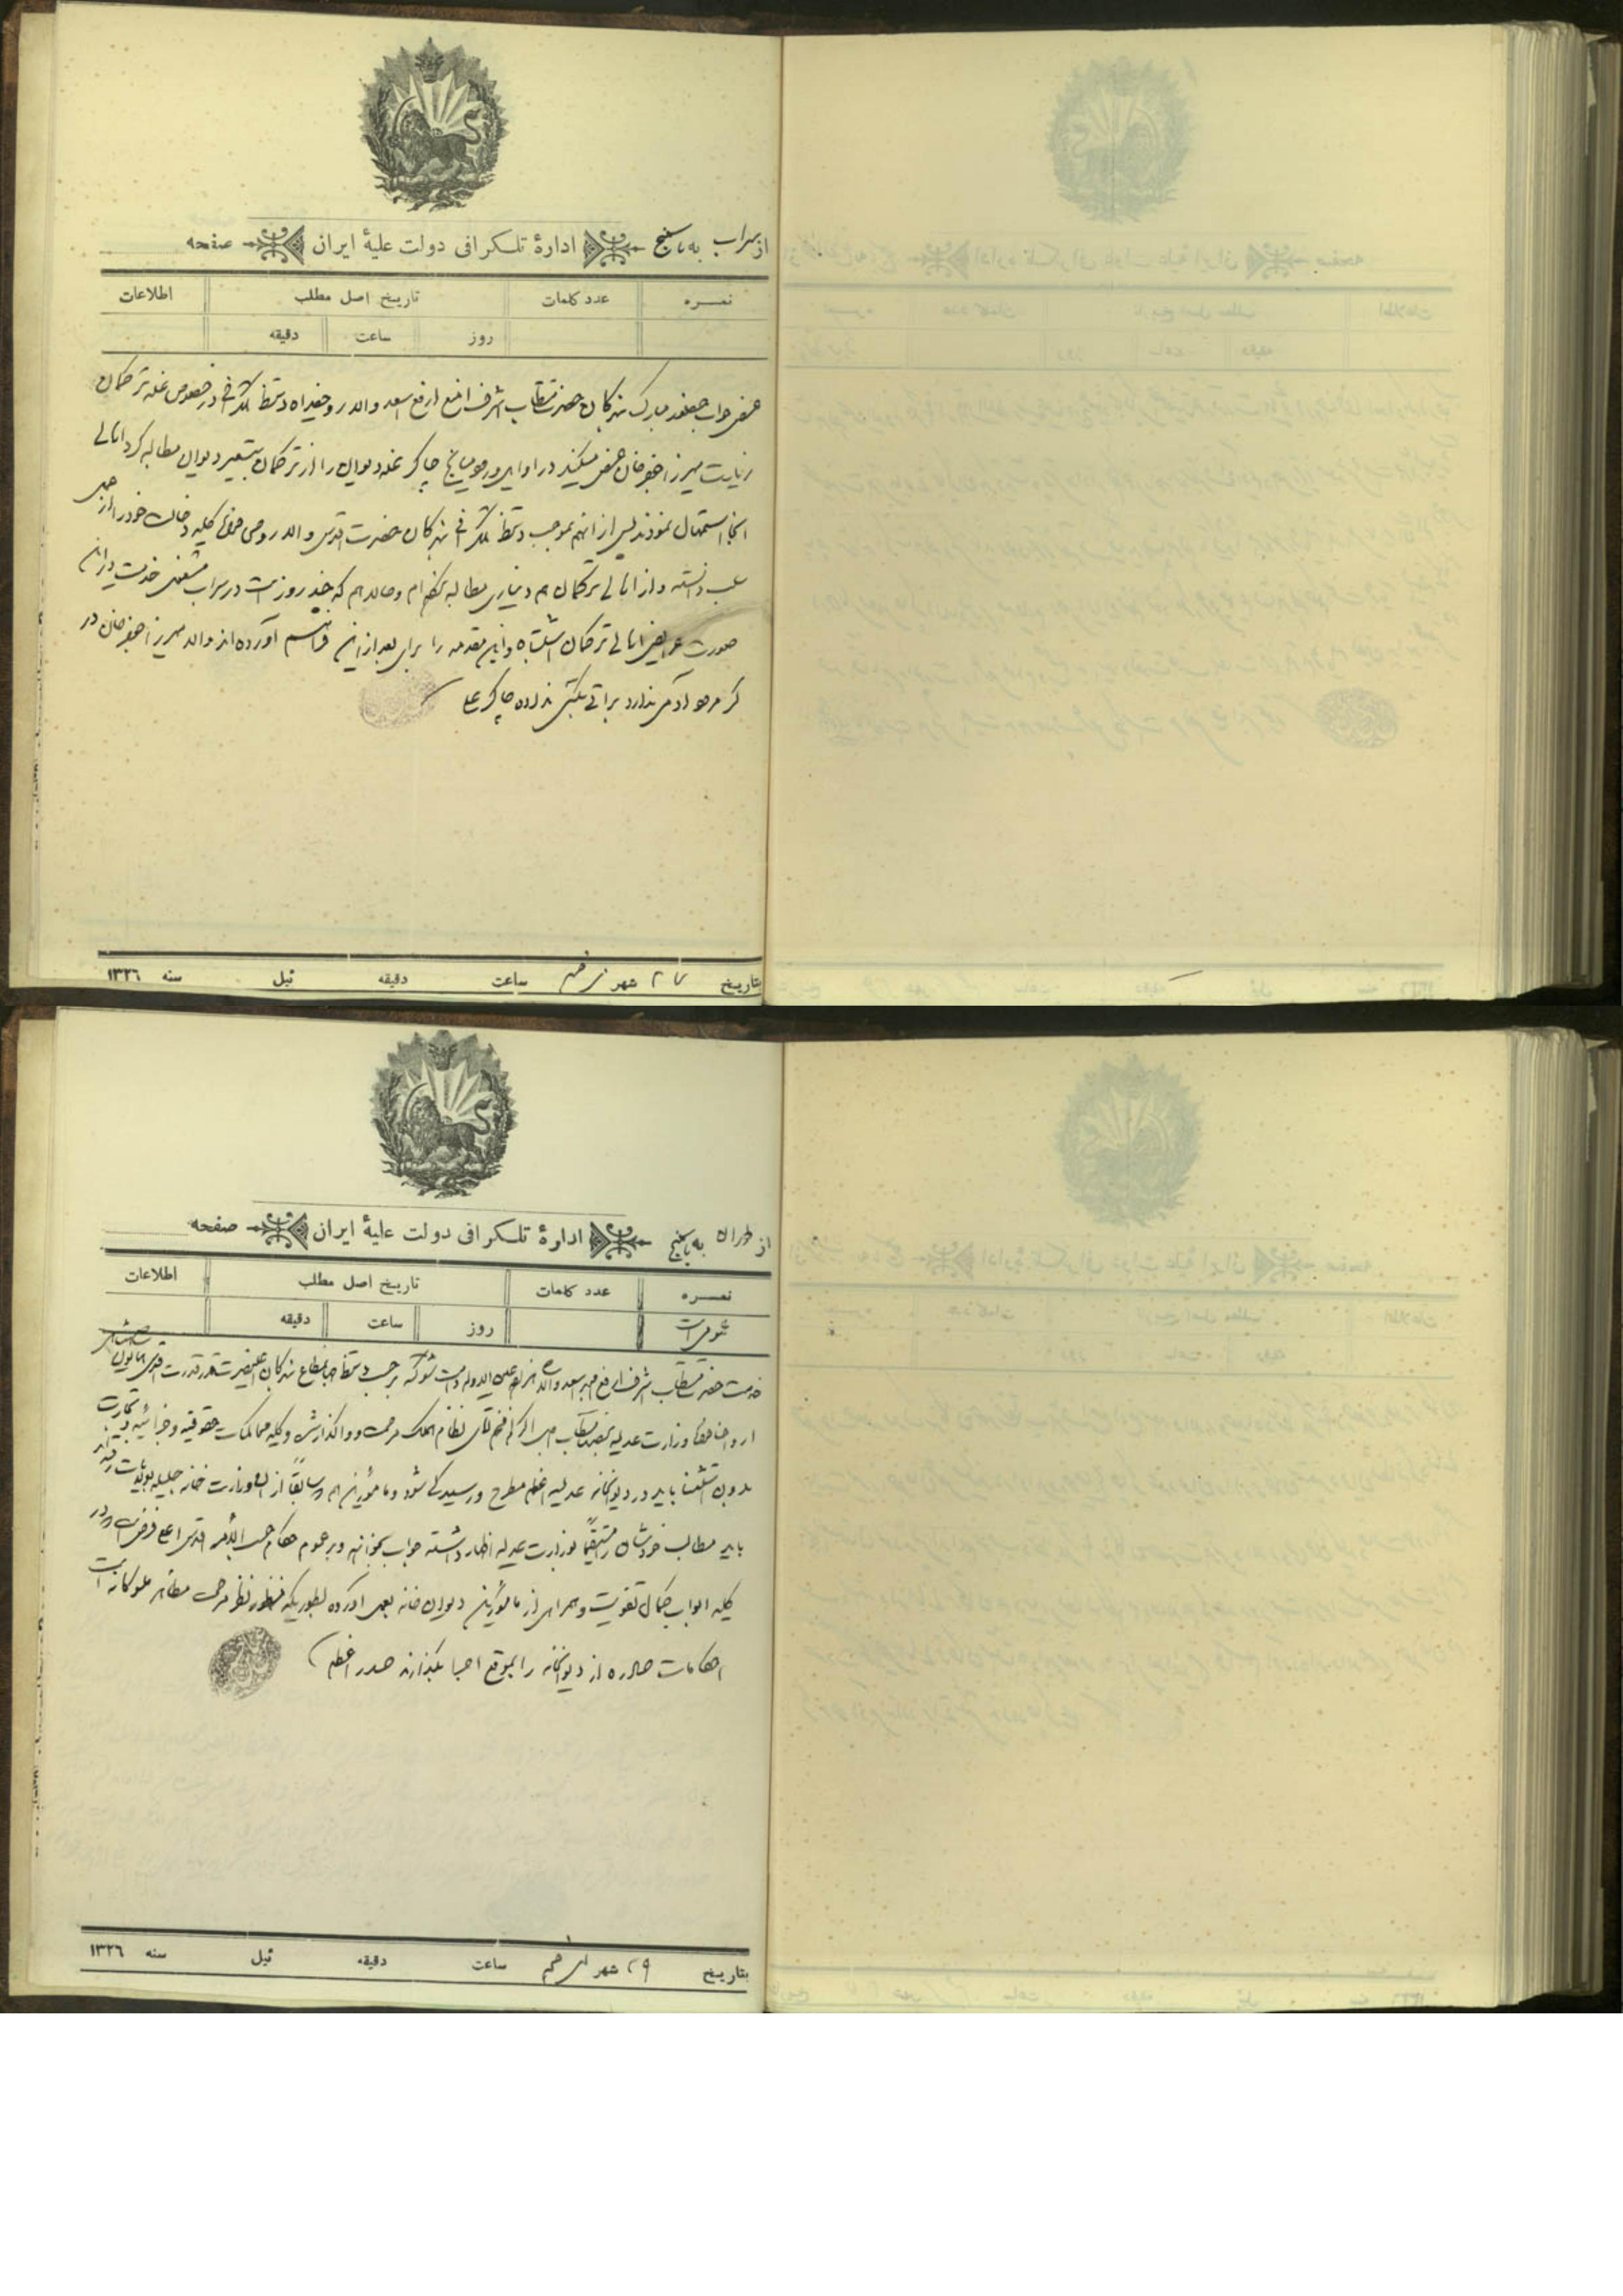 از سراب به باسمنج ادارهٔ تلگرافی دولت علیهٔ ایران صفحه
نمره عدد کلمات تاریخ اصل مطلب اطلاعات
روز ساعت دقیقه
حضور مبارک بندکان حضرت مستطاب اشرف امنع ارفع اسعد والا روحیفداه دستخط تلگرافی در خصوص غله ترکمان
زیارت میرزا جعفرخان عرض میکند در اوایل ورود میانج چاکر غله دیوان را از ترکمان بتسعیر دیوان مطالبه کرد اهالی
آنجا استمهال نمودند پس از آنهم بموجب دستخط تلگرافی بندکان حضرت اقدس والا روحی فداه کلیه دخالت خود را از
سلب دانسته و از اهالی ترکمان هم دیناری مطالبه نکرده‌ام و حالا هم که چند روز است در سراب مشغول خدمت
صورت عرایض اهالی ترکمان اشتباه و این مقدمه را برای بعد از این فراهم آورده‌اند والا میرزا جعفرخان در
گرمرود آدمی ندارد براتی بکسی نداده چاکر
بتاریخ ۲۷ شهر ساعت دقیقه ئیل سنه ۱۳۲۶
از طهران به باسمنج ادارهٔ تلگرافی دولت علیهٔ ایران صفحه
نمره عدد کلمات تاریخ اصل مطلب اطلاعات
روز ساعت دقیقه
خدمت حضرت مستطاب اشرف ارفع امجد اسعد والا شاهزاده عین الدوله دامت شوکته برحسب دستخط مطاع بندکان اعلیحضرت قدرقدرت اقدس همایون شاهنشاهی
ارواحنا فداه وزارت عدلیه بجناب مستطاب اجل اکرم افخم آقای نظام الملک مرحمت و واگذار شد و کلیه محاکمات حقوقیه و جزائیه و تجارت
بدون استثنا باید در دیوانخانه عدلیه اعظم مطرح و رسیدگی شود و مأمورین هم که سابقاً از وزارت خانه جلیله بولایات رفته‌اند
باید مطالب خودشان را مستقیماً بوزارت عدلیه اظهار داشته جواب بخواهند و بر عموم حکام حسب الامر اقدس اعلی فرض است در
کلیه ابواب کمال تقویت و همراهی از مأمورین دیوان خانه بعمل آورده بطوریکه منظور نظر مرحمت مظاهر ملوکانه است
احکامات صادره از دیوانخانه را بموقع اجرا بگذارند صدر اعظم
بتاریخ ۲۹ شهر ساعت دقیقه ئیل سنه ۱۳۲۶